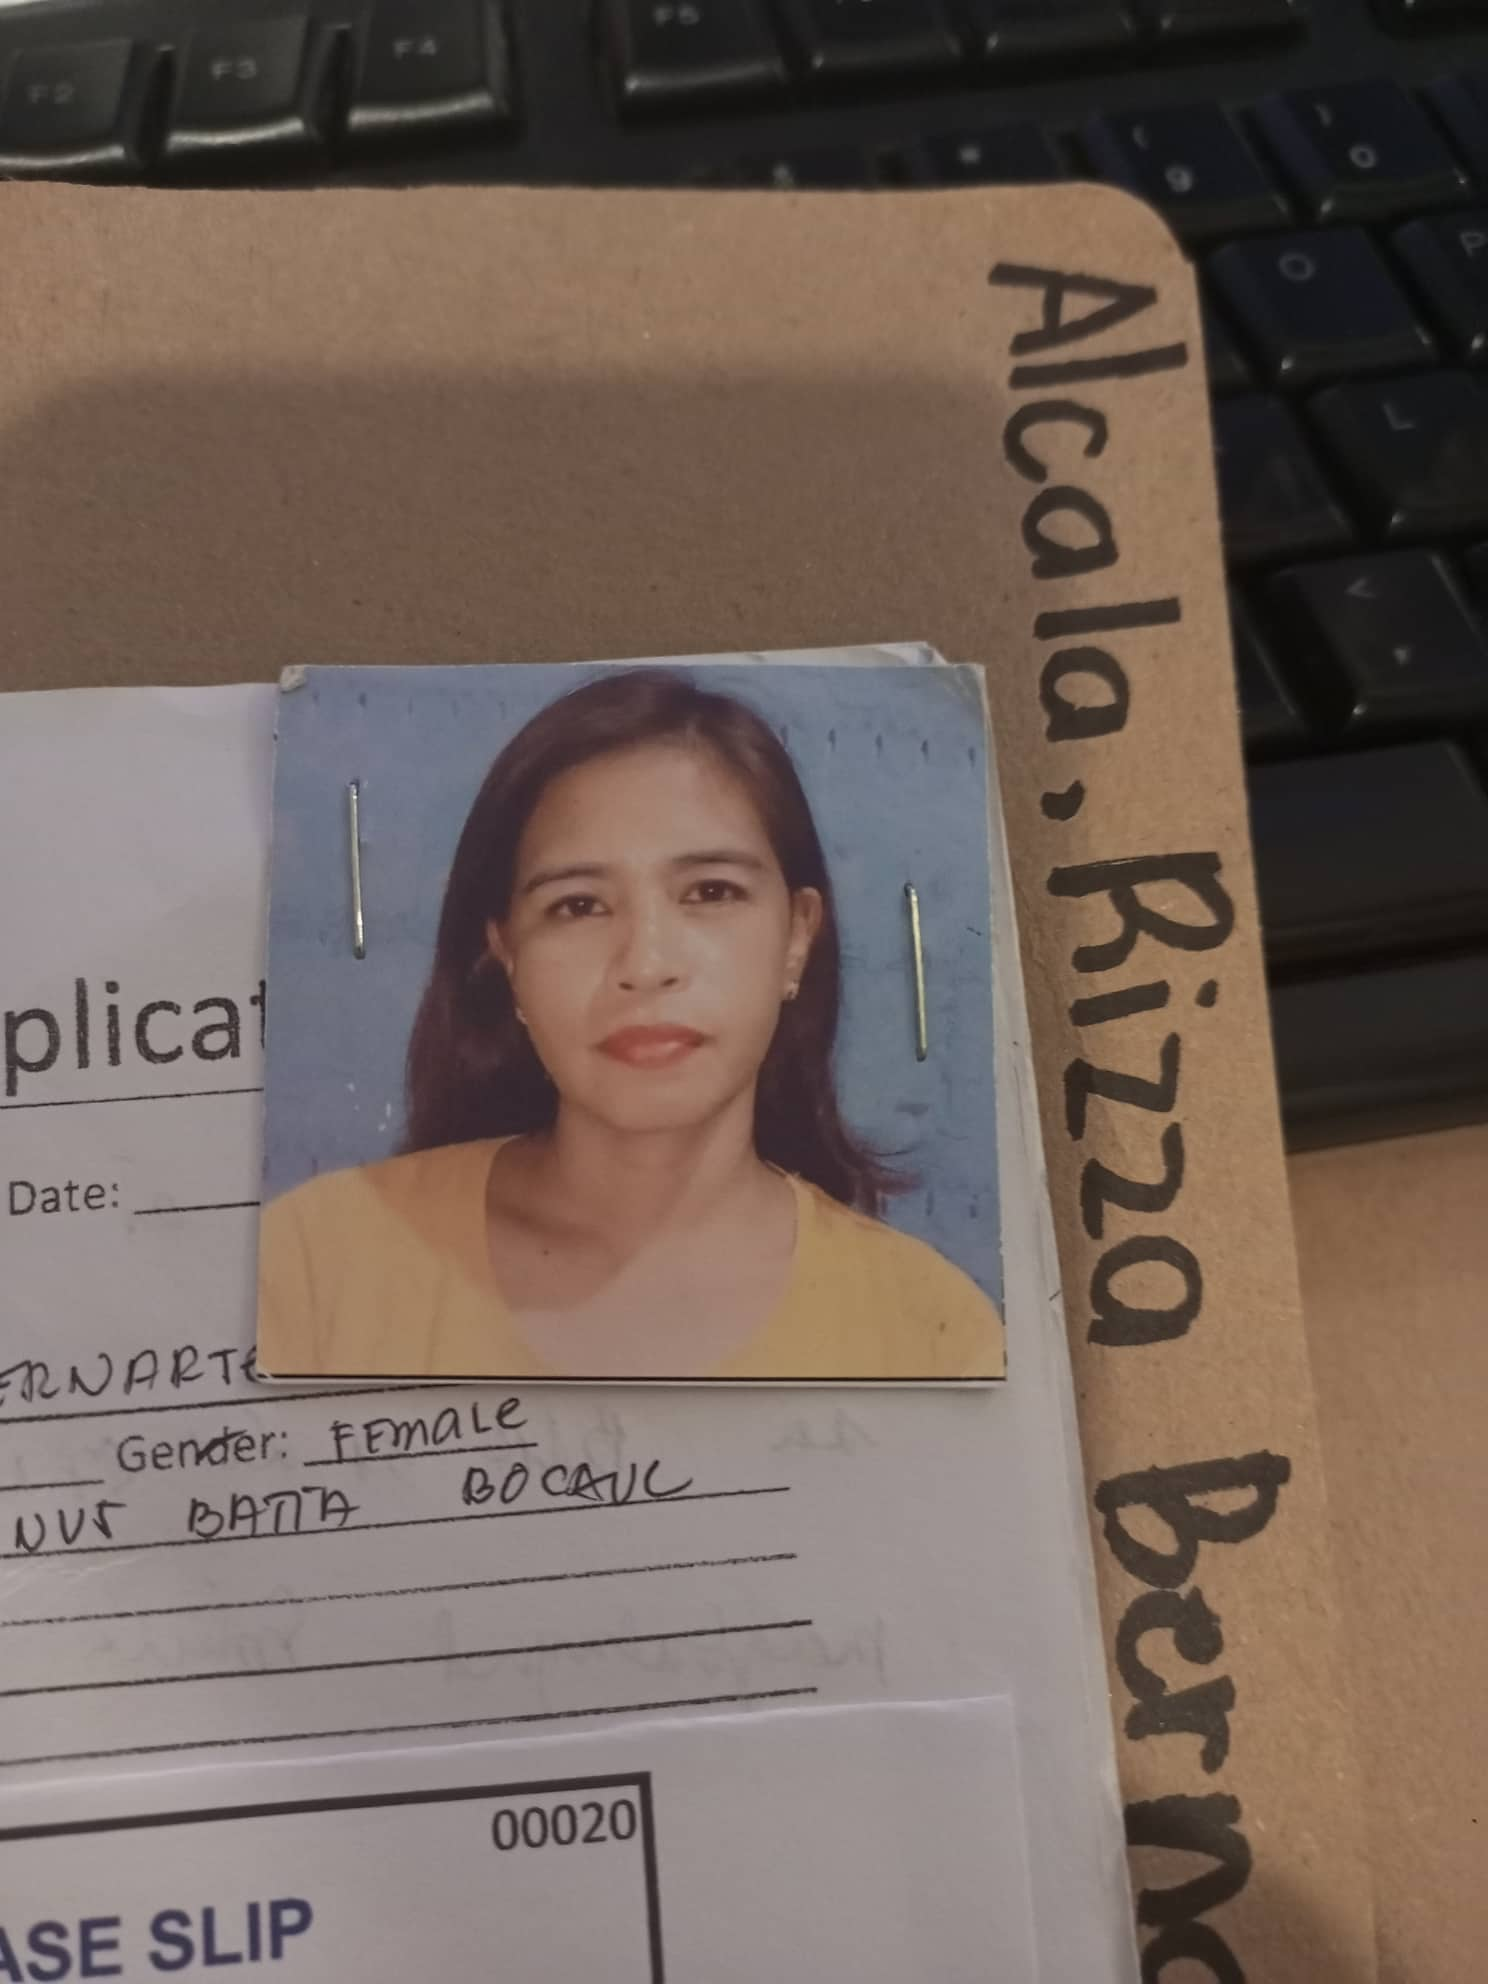 F2 F3 F4 F5
* ( 9 ) 0
O P
L
< ,
Alcala, Rizza Berna
plicat
Date:
ERNARTE
Gender: FEMALE
BOCAUE
00020
ASE SLIP